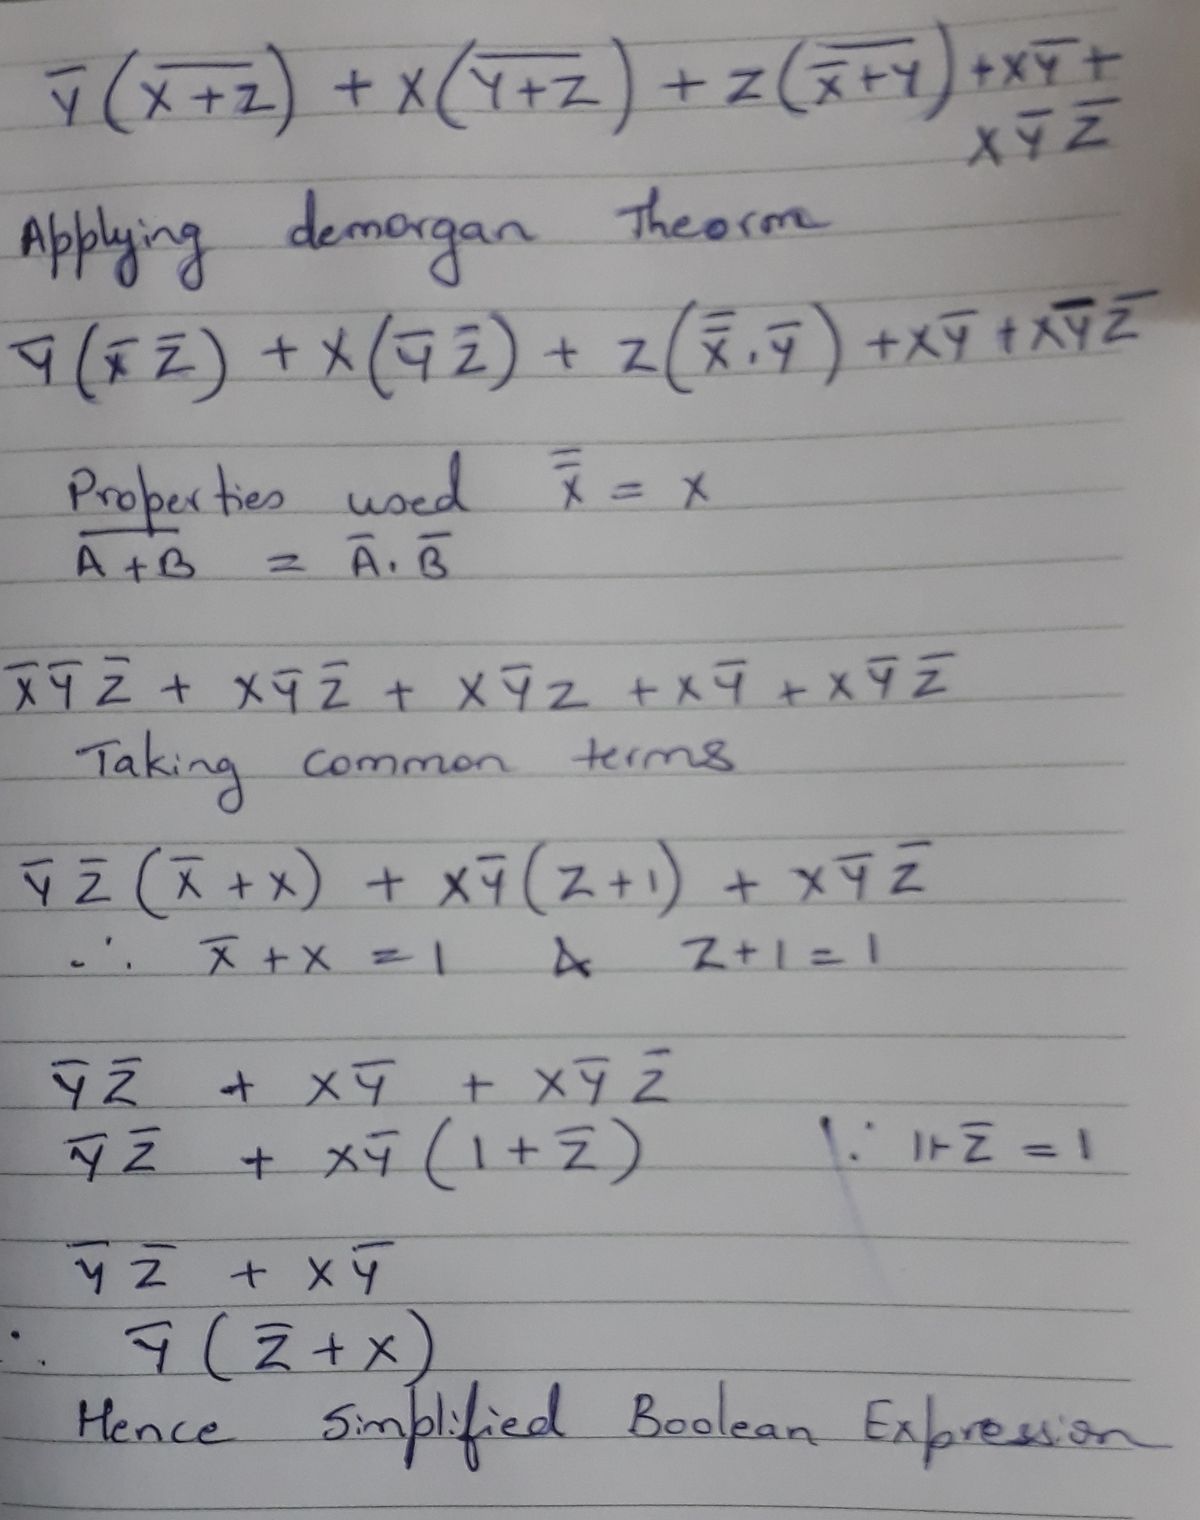 Y̅(X̅+̅Z̅) + X(Y̅+̅Z̅) + Z(X̿+̅Y̅) + XY̅ +
XY̅Z̅
Applying demorgan Theorm
Y̅(X̅Z̅) + X(Y̅Z̅) + Z(X̿.Y̅) + XY̅ + XY̅Z̅
Properties used X̿ = X
A̅+̅B̅ = A̅.B̅
X̅Y̅Z̅ + XY̅Z̅ + XY̅Z + XY̅ + XY̅Z̅
Taking common terms
Y̅Z̅(X̅+X) + XY̅(Z+1) + XY̅Z̅
∴ X̅+X = 1 & Z+1=1
Y̅Z̅ + XY̅ + XY̅Z̅
Y̅Z̅ + XY̅(1+Z̅) ∵ 1+Z̅ = 1
Y̅Z̅ + XY̅
∴ Y̅(Z̅+X)
Hence Simplified Boolean Expression